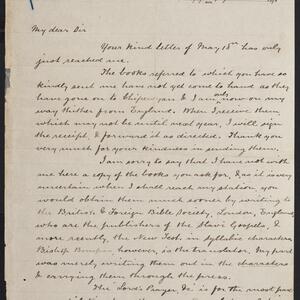 My dear Sir
Your kind letter of May 13th has only
just reached me.
The books referred to which you have so
kindly sent me have not yet come to hand as they
have gone on to Chipewyan & I am now on my
way thither from England. When I receive them
which may not be until next year, I will sign
the receipt, & forward it as directed. Thank you
very much for your kindness in sending them.
I am sorry to say that I have not with
me here a copy of the books you ask for, & as it is very
uncertain when I shall reach my station, you
would obtain them much sooner by writing to
the British & Foreign Bible Society, London, England
who are the publishers of the Slavi Gospels, &
more recently, the New Test. in syllabic characters
Bishop however, is the translator. My part
was merely writing them out in the characters
& carrying them through the press.
The Lord's Prayer, &c is for the most